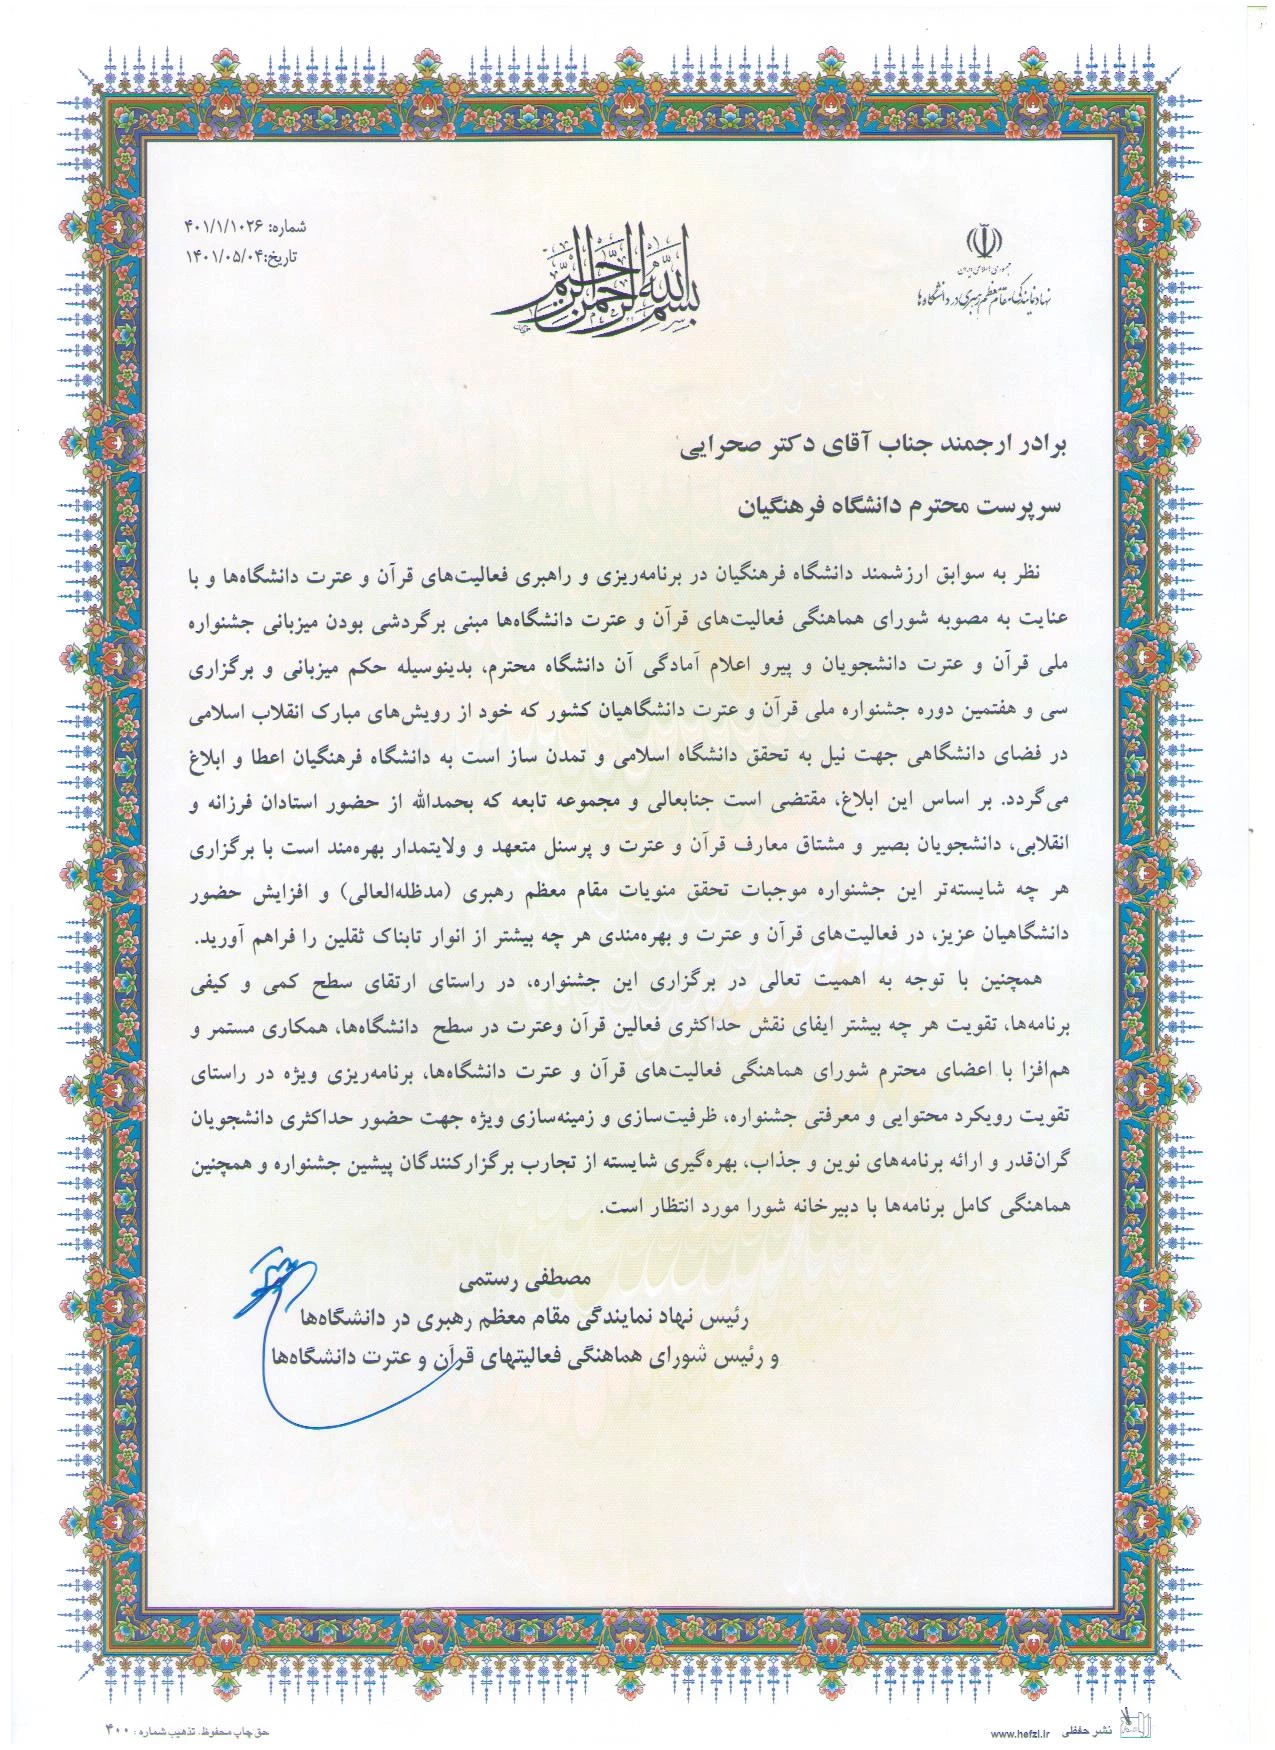 بسم الله الرحمن الرحیم
جمهوری اسلامی ایران
نهاد نمایندگی مقام معظم رهبری در دانشگاه‌ها
شماره: ۴۰۱/۱/۱۰۲۶
تاریخ:۱۴۰۱/۰۵/۰۴
برادر ارجمند جناب آقای دکتر صحرایی
سرپرست محترم دانشگاه فرهنگیان
نظر به سوابق ارزشمند دانشگاه فرهنگیان در برنامه‌ریزی و راهبری فعالیت‌های قرآن و عترت دانشگاه‌ها و با
عنایت به مصوبه شورای هماهنگی فعالیت‌های قرآن و عترت دانشگاه‌ها مبنی برگردشی بودن میزبانی جشنواره
ملی قرآن و عترت دانشجویان و پیرو اعلام آمادگی آن دانشگاه محترم، بدینوسیله حکم میزبانی و برگزاری
سی و هفتمین دوره جشنواره ملی قرآن و عترت دانشگاهیان کشور که خود از رویش‌های مبارک انقلاب اسلامی
در فضای دانشگاهی جهت نیل به تحقق دانشگاه اسلامی و تمدن ساز است به دانشگاه فرهنگیان اعطا و ابلاغ
می‌گردد. بر اساس این ابلاغ، مقتضی است جنابعالی و مجموعه تابعه که بحمدالله از حضور استادان فرزانه و
انقلابی، دانشجویان بصیر و مشتاق معارف قرآن و عترت و پرسنل متعهد و ولایتمدار بهره‌مند است با برگزاری
هر چه شایسته‌تر این جشنواره موجبات تحقق منویات مقام معظم رهبری (مدظله‌العالی) و افزایش حضور
دانشگاهیان عزیز، در فعالیت‌های قرآن و عترت و بهره‌مندی هر چه بیشتر از انوار تابناک ثقلین را فراهم آورید.
همچنین با توجه به اهمیت تعالی در برگزاری این جشنواره، در راستای ارتقای سطح کمی و کیفی
برنامه‌ها، تقویت هر چه بیشتر ایفای نقش حداکثری فعالین قرآن وعترت در سطح دانشگاه‌ها، همکاری مستمر و
هم‌افزا با اعضای محترم شورای هماهنگی فعالیت‌های قرآن و عترت دانشگاه‌ها، برنامه‌ریزی ویژه در راستای
تقویت رویکرد محتوایی و معرفتی جشنواره، ظرفیت‌سازی و زمینه‌سازی ویژه جهت حضور حداکثری دانشجویان
گران‌قدر و ارائه برنامه‌های نوین و جذاب، بهره‌گیری شایسته از تجارب برگزارکنندگان پیشین جشنواره و همچنین
هماهنگی کامل برنامه‌ها با دبیرخانه شورا مورد انتظار است.
مصطفی رستمی
رئیس نهاد نمایندگی مقام معظم رهبری در دانشگاه‌ها
و رئیس شورای هماهنگی فعالیتهای قرآن و عترت دانشگاه‌ها
نشر حفظی www.hefzi.ir
حق چاپ محفوظ. تذهیب شماره: ۴۰۰